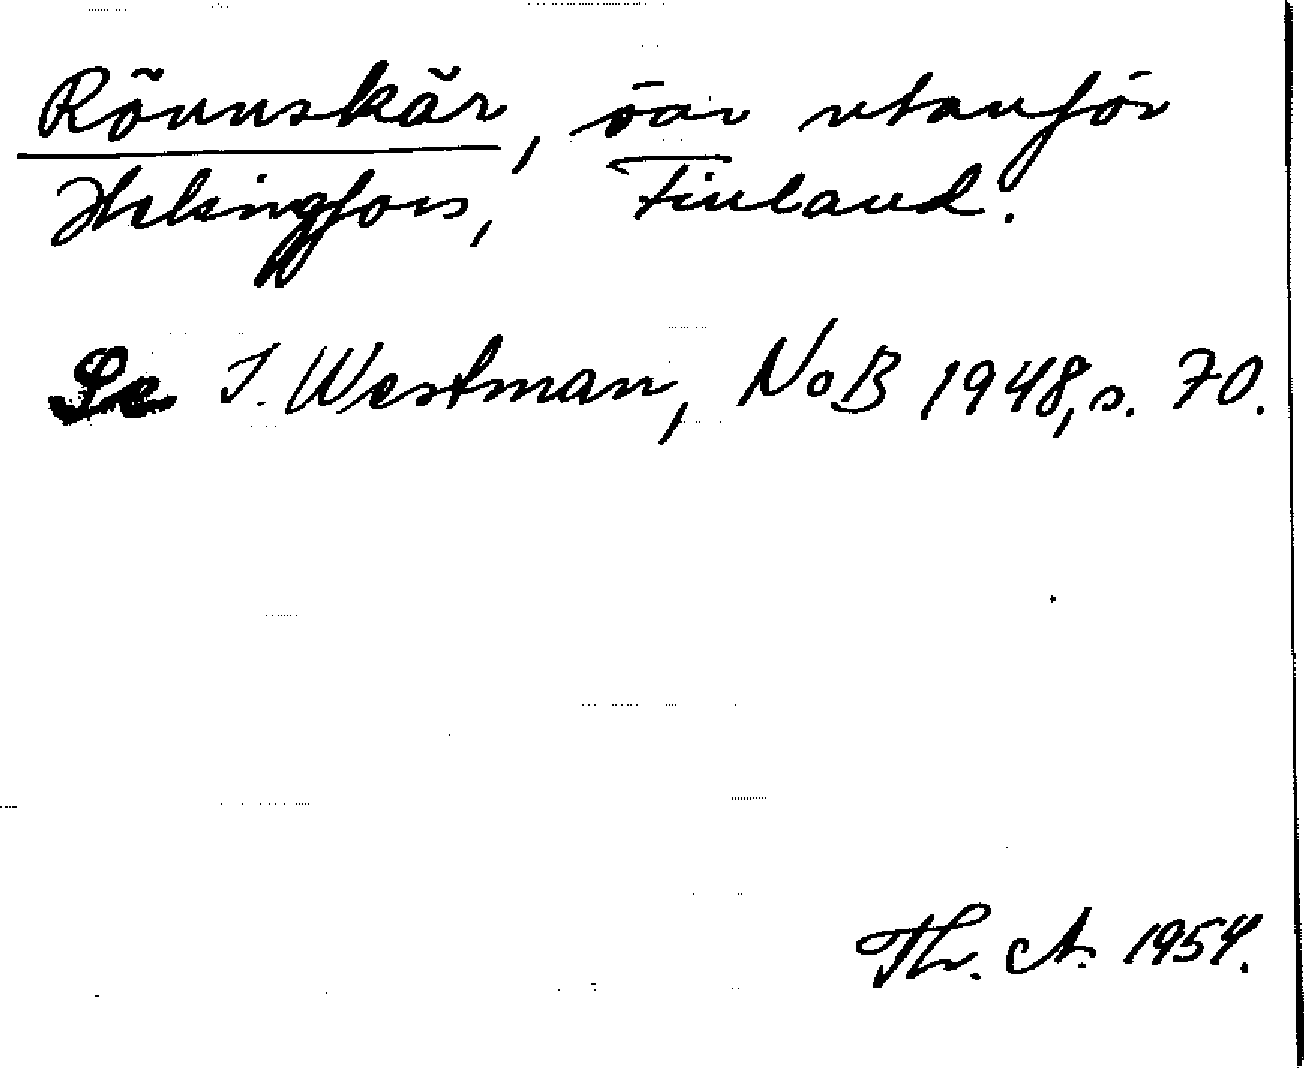 Rönnskär, öar utanför
Helsingfors, Finland.
Se I. Westman, NoB 1948, s. 70.
Th. A. 1954.